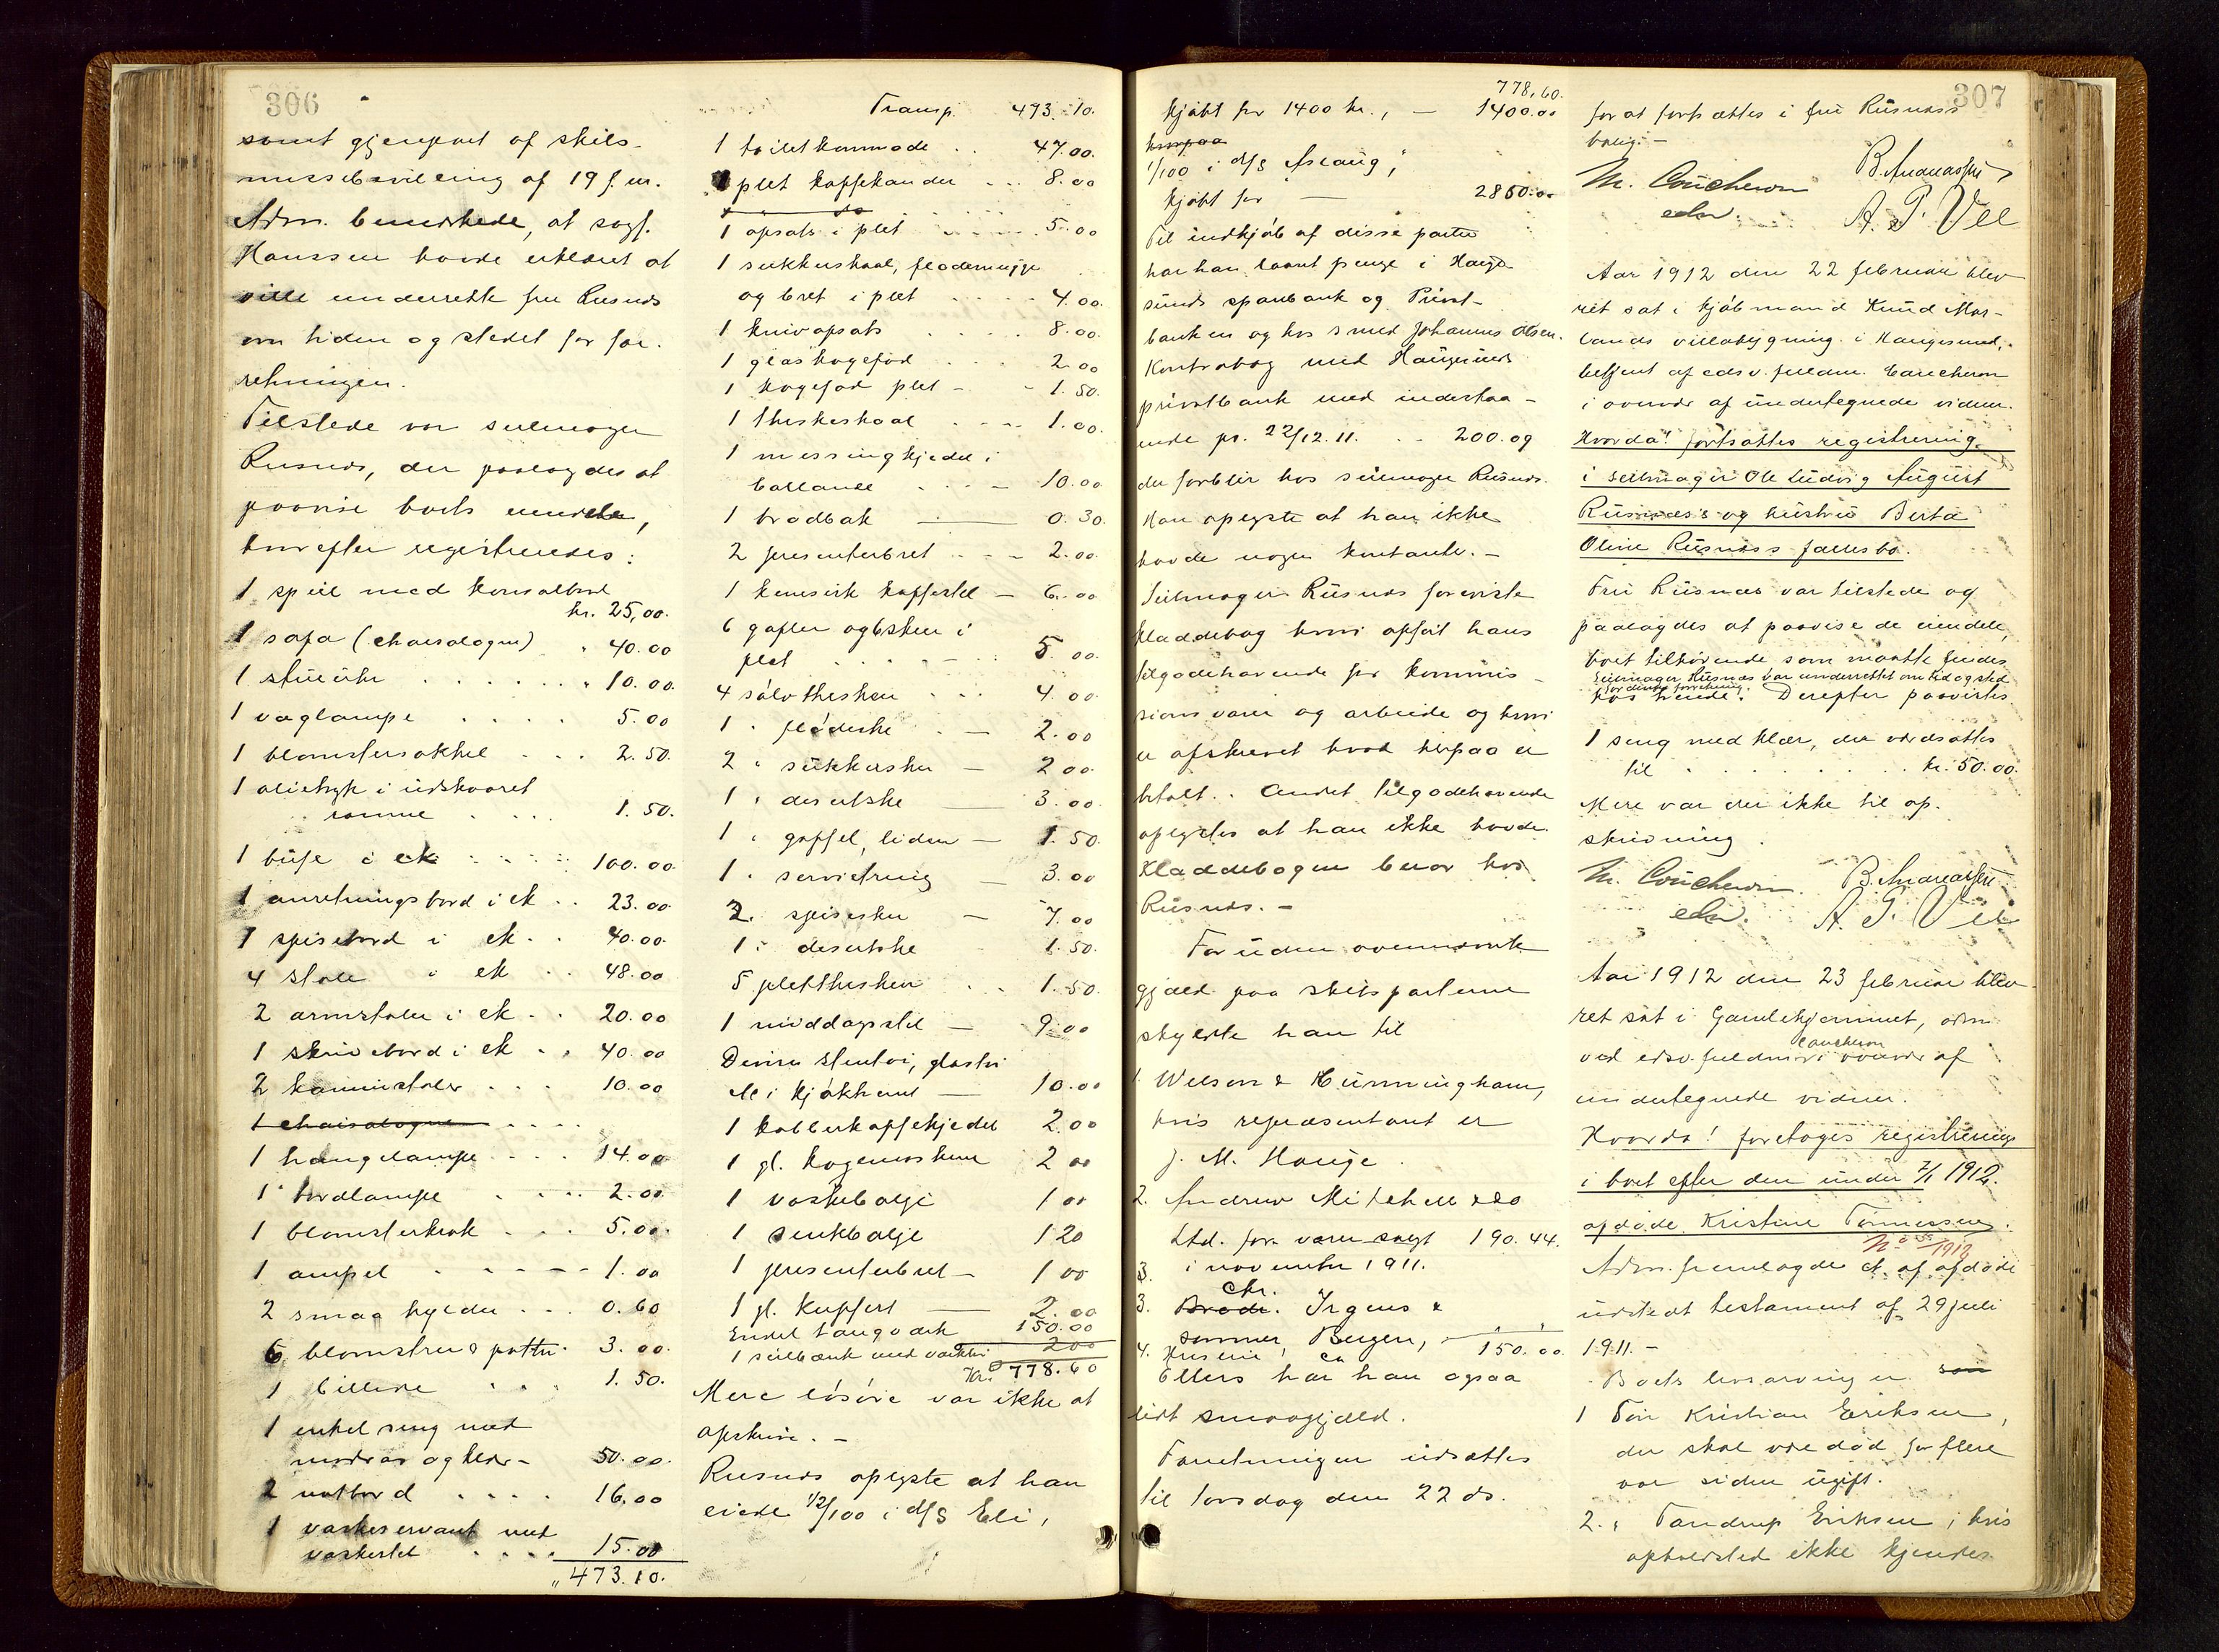 306
samt gjenpart af skils-
missebevilling af 19 f. m.
Adm. bemerkede, at sagf.
Hanssen havde erklæret at
ville underrette fru Rusnæs
om tiden og stedet for for-
retningen.
Tilstede var seilmager
Rusnæs, der paalagdes at
paavise boets eiendele,
hvorefter registreredes:
1 speil med konsolbord
kr. 25,00.
1 sofa (chaiselogue) " 40.00
1 stueuhr . . . " 10.00.
1 væglampe . . . . 5.00
1 blomstersokkel . . . 2.50.
1 olietryk i udskaaret
ramme . . . . 1.50.
1 buffe i ek . . . 100.00.
1 anretningsbord i ek . . 23.00
1 spisebord i ek . . 40.00.
4 stole i ek . . 48.00
2 armstoler i ek . . 20.00
1 skrivebord i ek . . 40.00
2 kaminstoler . . . 10.00
1 chaiselogue . . . .
1 hængelampe . . . 14.00
1 bordlampe . . . . 2.00.
1 blomsterkrak . . . 5.00.
1 ampel . . . . 1.00
2 smaa hylder . . . 0.60
6 blomster & potter. 3.00.
1 billede . . . 1.50.
1 enkel seng med
madras og klær - 50.00.
2 natbord . . . . 16,00
1 vaskeservant med
vaskestel . . . . 15.00
" 473.10.
Transp. 473.10.
1 toiletkommode . . 47.00.
1 plet kaffekander . . . 8.00
1 opsats i plet . . . . 5.00
1 sukkerskaal, flødemugge
og bret i plet . . . . 4.00.
1 knivopsats . . . . 8.00.
1 glas kagefad . . . 2.00
1 kagefad plet - - 1.50.
1 theskeskaal . . . . 1.00.
1 messingkjedel i
ballanse . . . - 10.00
1 brødbak — 0.30.
2 presenterbret . . . - 2.00.
1 kinesisk kaffestel - 6.00
6 gafler og 6 skeer i
plet . . . . - . . 5.00.
4 sølv theskeer . . . 4.00
1 " flødeske . - 2.00
2 " sukkerskeer — 2 00.
1 " desertske — 3.00.
1 " gaffel, liden — 1.50.
1 " servietring — 3.00
2. " spiseskeer — 7.00
1 " desertske 1.50.
5 pletttheskeer . . . 1.50.
1 middagsstel — 9.00
Diverse stentøi, glastøi
alt i kjøkkenet — 10.00
1 kobberkaffekjedel 2.00
1 gl. kogemaskine 2 00
1 vaskebalje 1 00
1 sinkbalje 1 20
1 presenterbret - 1 00
1 gl. kuffert — 2.00
Endel taugværk 150.00
1 seilbænk med verktøi 200
Kr. 778.60
Mere løsøre var ikke at
opskrive. -
Rusnæs oplyste at han
eiede 1/2/100 i d/s Eli,
778,60.
kjøbt for 1400 kr., — 1400.00
hvorpaa
1/100 i d/s Aslaug,
kjøbt for — 2850.00
Til indkjøb af disse parter
har han laant penge i Hauge-
sunds sparebank og Privat-
banken og hos smed Johannes Olsen.
Kontrabog med Haugesunds
privatbank med indestaa-
ende pr. 22/12.11. . . 200.09
der forblir hos seilmager Rusnæs.
Han oplyste at han ikke
havde nogen kontanter. -
Seilmager Rusnæs foreviste
kladdebog hvori opført hans
tilgodehavende for kommis-
sionsvarer og arbeide og hvori
er afskrevet hvad herpaa er
betalt. Andet tilgodehavende
oplystes at han ikke havde.
Kladdebogen beror hos
Rusnæs. -
Foruden ovennævnte
gjæld paa skibsparterne
skyldte han til
1. Wilson & Kunningham,
hvis repræsentant er
J. M. Hauge.
2. Andrew Mitchell & Co
Ltd. for varer solgt 190.44.
3. i november 1911.
3. Brødr. Chr. Irgens &
sønner, Bergen,
4. Husleie, ca 150.00.
Ellers har han ogsaa
lidt smaagjæld.
Forretningen udsættes
til torsdag den 22 ds.
307
for at fortsættes i fru Rusnæss
bolig. -
M. Coucheron B. Andreassen
edsv. A. P. Vee
Aar 1912 den 22 februar blev
ret sat i kjøbmand Knud Mar-
lands villabygning i Haugesund,
betjent af edsv. fuldm. Coucheron
i overvær af undertegnede vidner.
Hvorda! fortsattes registrering
i seilmager Ole Ludvig August
Rusnæs's og hustru Berta
Oline Rusnæss fællesbo.
Fru Rusnæs var tilstede og
paalagdes at paavise de eiendele,
boet tilhørende, som maatte findes
Seilmager Rusnæs var underrettet om tid og sted
for denne forretning.
hos hende. Derefter paavistes
1 seng med klær, der værdsattes
til . . . . . . kr. 50.00.
Mere var der ikke til op-
skrivning.
M. Coucheron. B. Andreassen
edsv. A. P. Vee
Aar 1912 den 23 februar blev
ret sat i Gamlehjemmet, adm.
ved edsv. fuldm. Coucheron i overvær af
undertegnede vidner.
Hvorda! foretoges registrering
i boet efter den under 7/1 1912.
afdøde Kristine Tønnessen.
1912
Adm. fremlagde et af afdøde
udstedt testament af 29 juli
1911. -
Boets livsarving er som
1 Tør Kristian Eriksen,
der skal være død for flere
aar siden ugift.
2. " Tandrup Eriksen, hvis
opholdsted ikke kjendes.